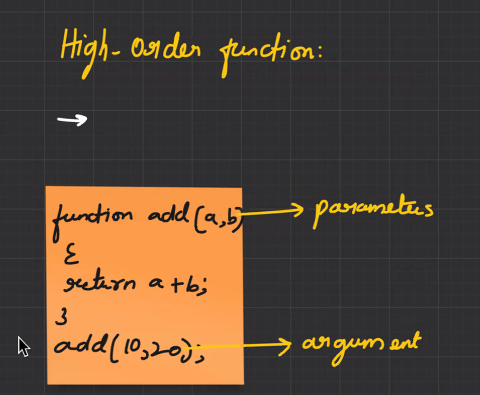 High-Order function:
function add(a,b) parameters
{
return a+b;
}
add(10,20); argument